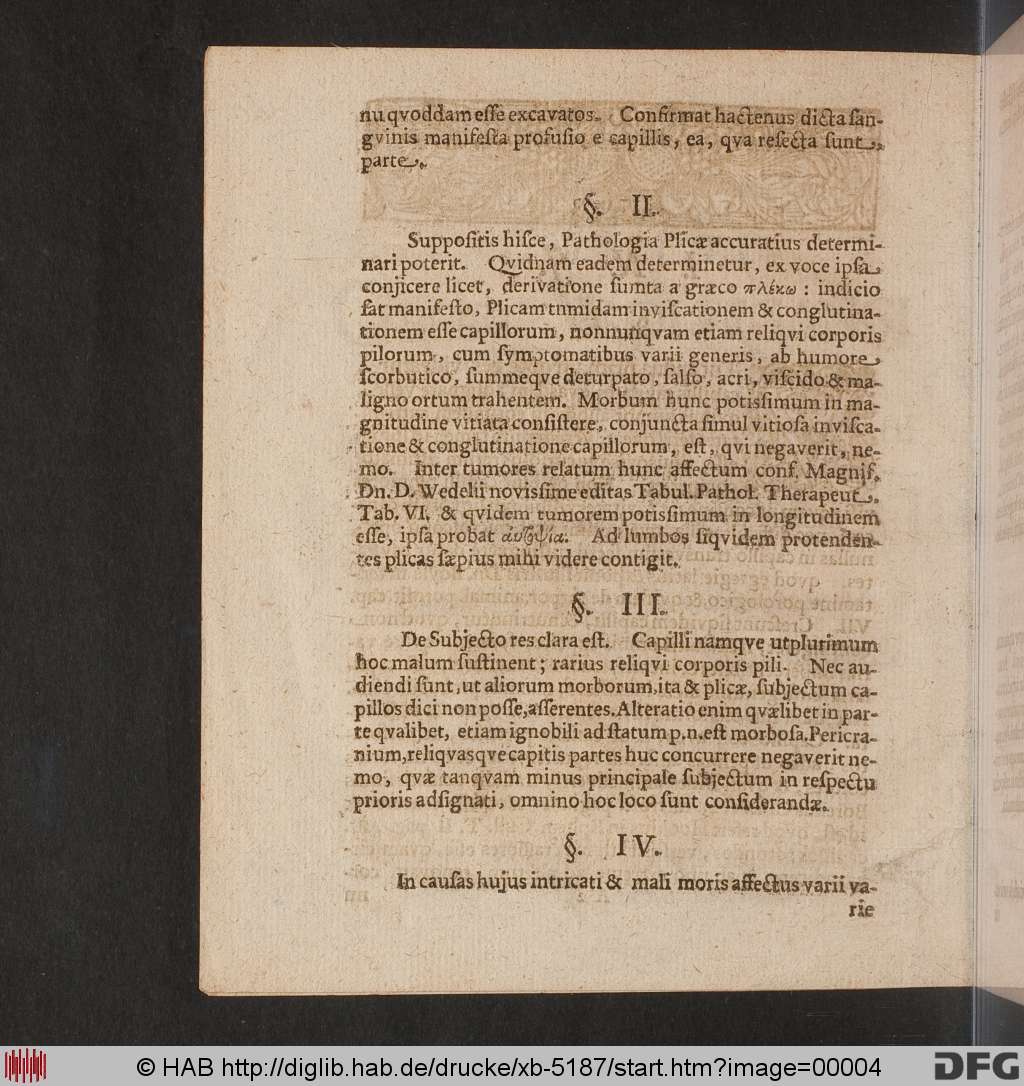 nu qvoddam eſſe excavatos. Confirmat hactenus dicta ſan-
gvinis manifeſta profuſio e capillis, ea, qva reſecta ſunt,
parte.
§. II.
Suppoſitis hiſce, Pathologia Plicæ accuratius determi-
nari poterit. Qvidnam eadem determinetur, ex voce ipſa
conjicere licet, derivatione ſumta a græco πλέκω : indicio
ſat manifeſto, Plicam tnmidam inviſcationem & conglutina-
tionem eſſe capillorum, nonnunqvam etiam reliqvi corporis
pilorum, cum ſymptomatibus varii generis, ab humore
ſcorbutico, ſummeqve deturpato, ſalſo, acri, viſcido & ma-
ligno ortum trahentem. Morbum hunc potisſimum in ma-
gnitudine vitiata conſiſtere, conjuncta ſimul vitioſa inviſca-
tione & conglutinatione capillorum, eſt, qvi negaverit, ne-
mo. Inter tumores relatum hunc affectum conf. Magnif.
Dn. D. Wedelii novisſime editas Tabul. Pathol. Therapeut.
Tab. VI. & qvidem tumorem potisſimum in longitudinem
eſſe, ipſa probat ἀυτοψία. Ad lumbos ſiqvidem protenden-
tes plicas ſæpius mihi videre contigit.
§. III.
De Subjecto res clara eſt. Capilli namqve utplurimum
hoc malum ſuſtinent; rarius reliqvi corporis pili. Nec au-
diendi ſunt, ut aliorum morborum, ita & plicæ, ſubjectum ca-
pillos dici non poſſe, aſſerentes. Alteratio enim qvælibet in par-
te qvalibet, etiam ignobili ad ſtatum p.n. eſt morboſa. Pericra-
nium, reliqvasqve capitis partes huc concurrere negaverit ne-
mo, qvæ tanqvam minus principale ſubjectum in reſpectu
prioris adſignati, omnino hoc loco ſunt conſiderandæ.
§. IV.
In cauſas hujus intricati & mali moris affectus varii va-
rie
© HAB http://diglib.hab.de/drucke/xb-5187/start.htm?image=00004
DFG